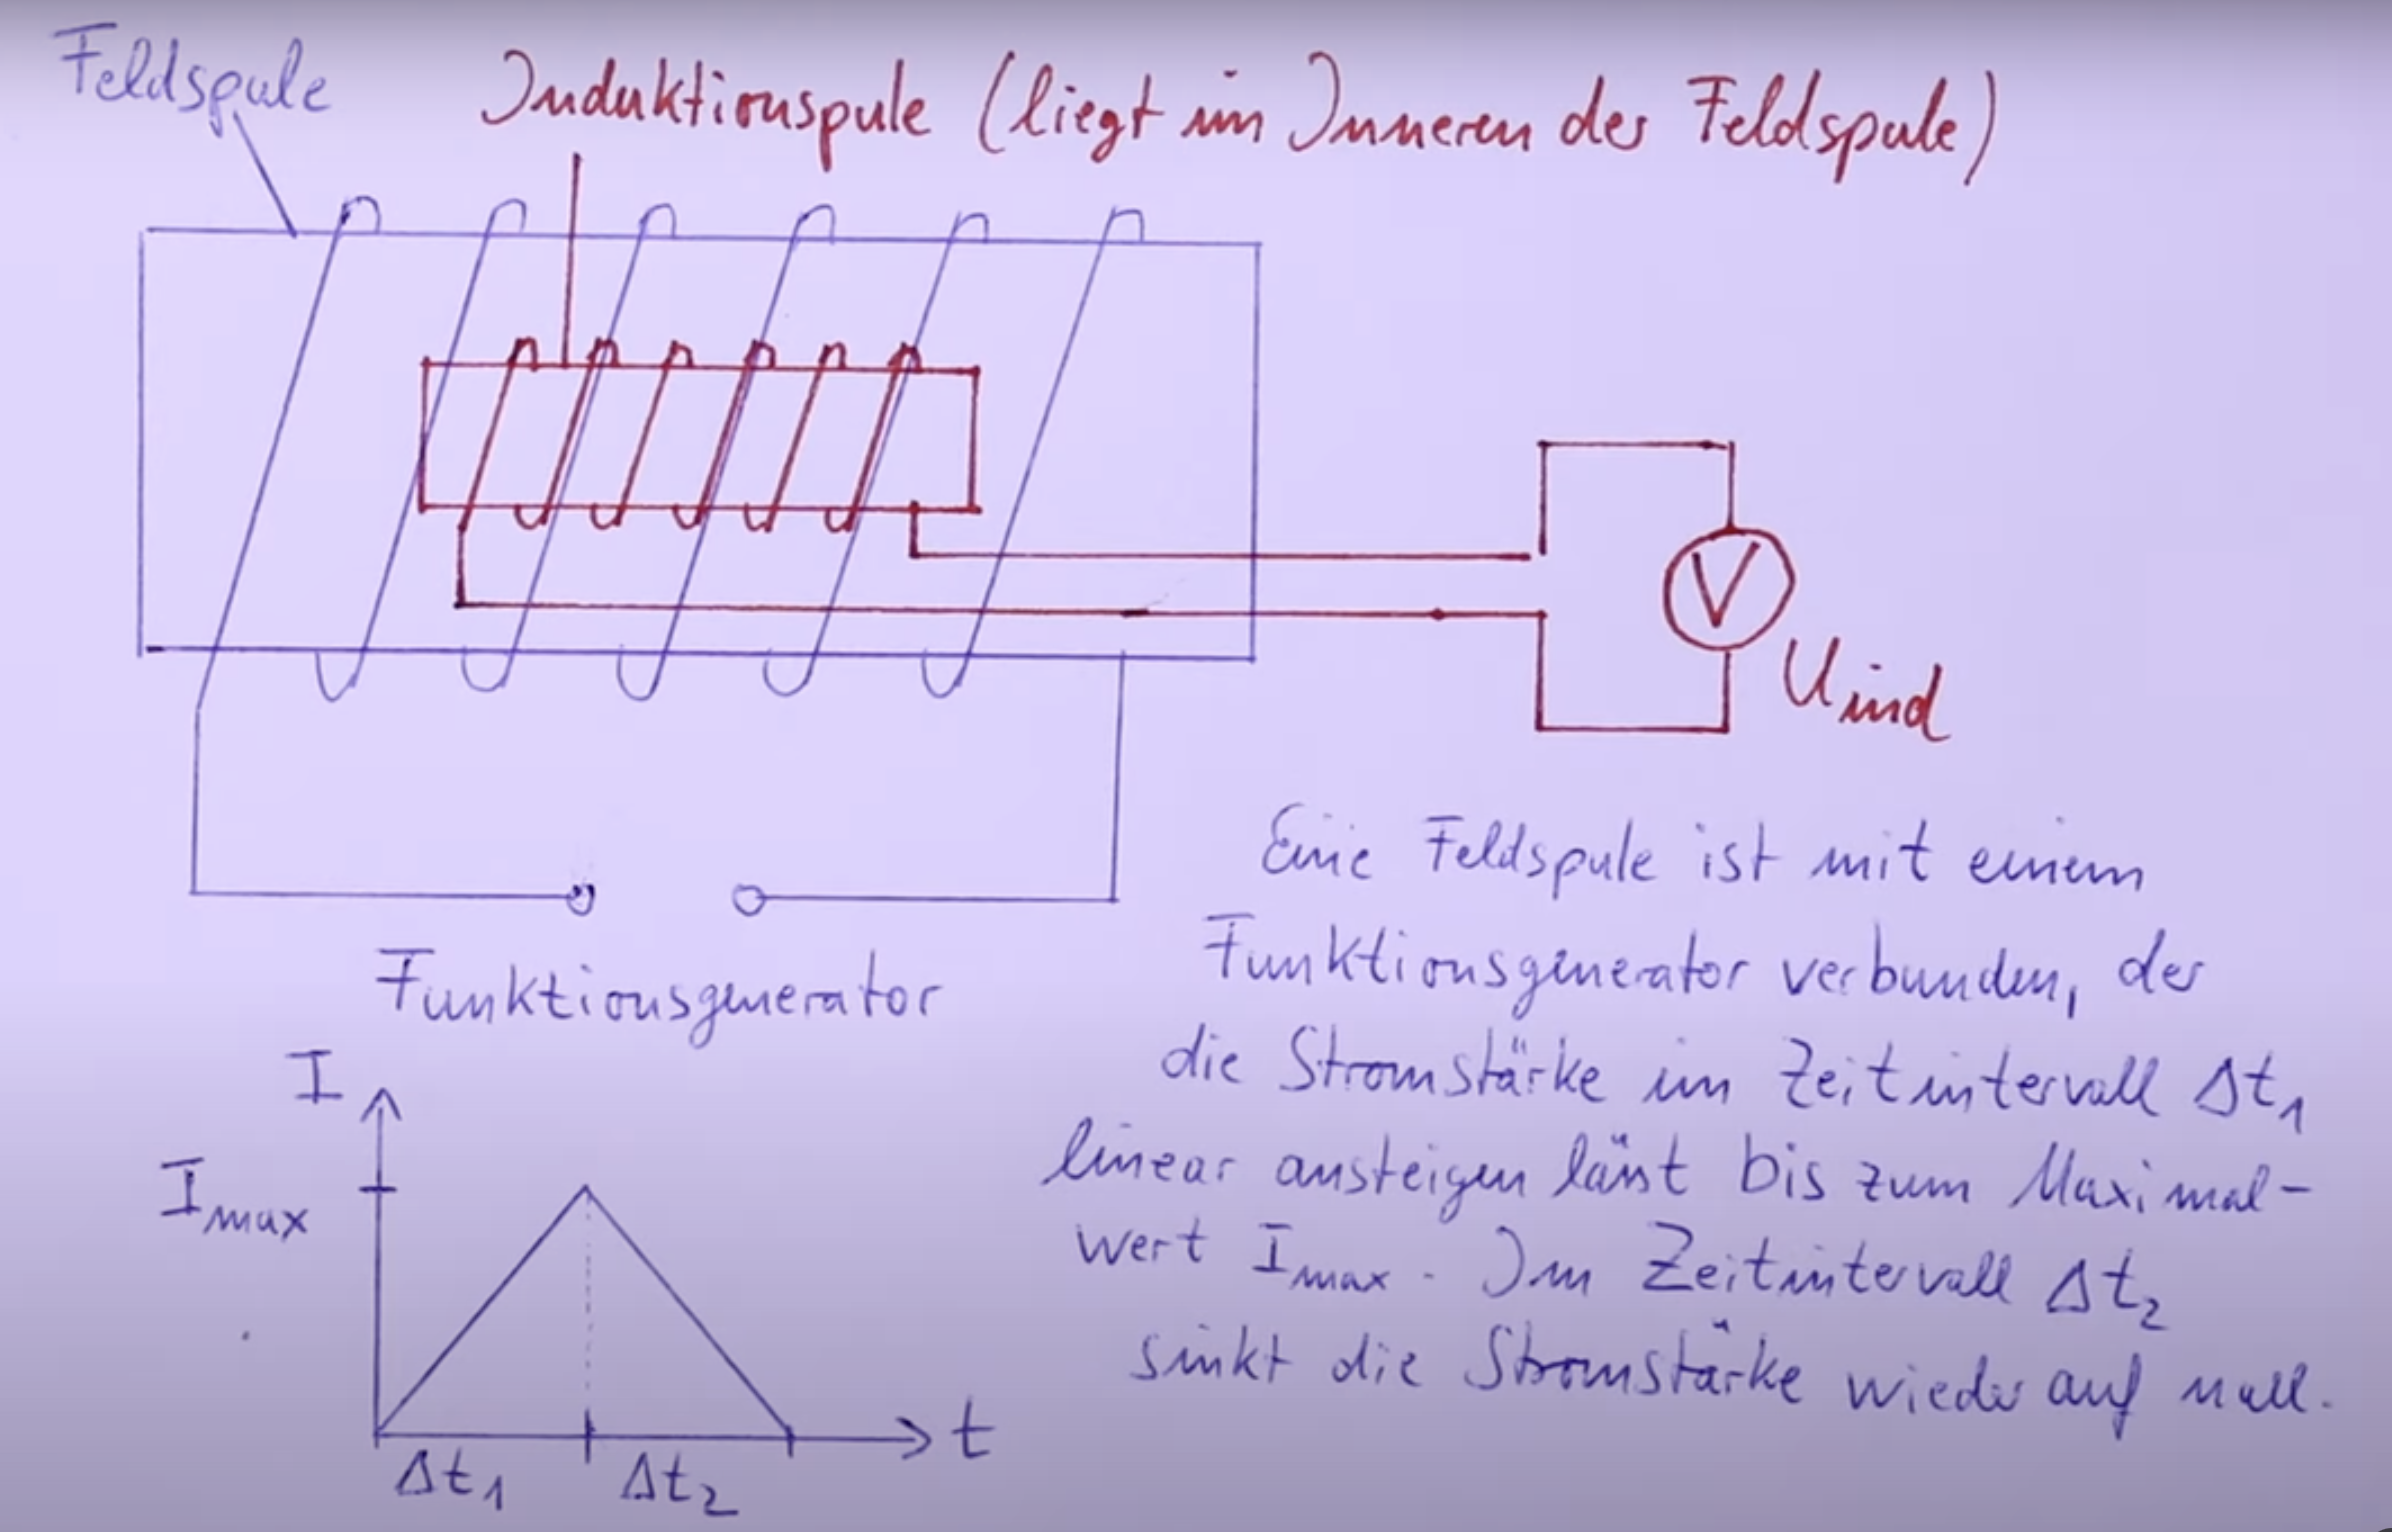 Feldspule
Induktionspule (liegt im Inneren der Feldspule)
V
Uind
Funktionsgenerator
I
Imax
Δt1
Δt2
t
Eine Feldspule ist mit einem
Funktionsgenerator verbunden, der
die Stromstärke im Zeitintervall Δt1
linear ansteigen lässt bis zum Maximal-
wert Imax. Im Zeitintervall Δt2
sinkt die Stromstärke wieder auf null.